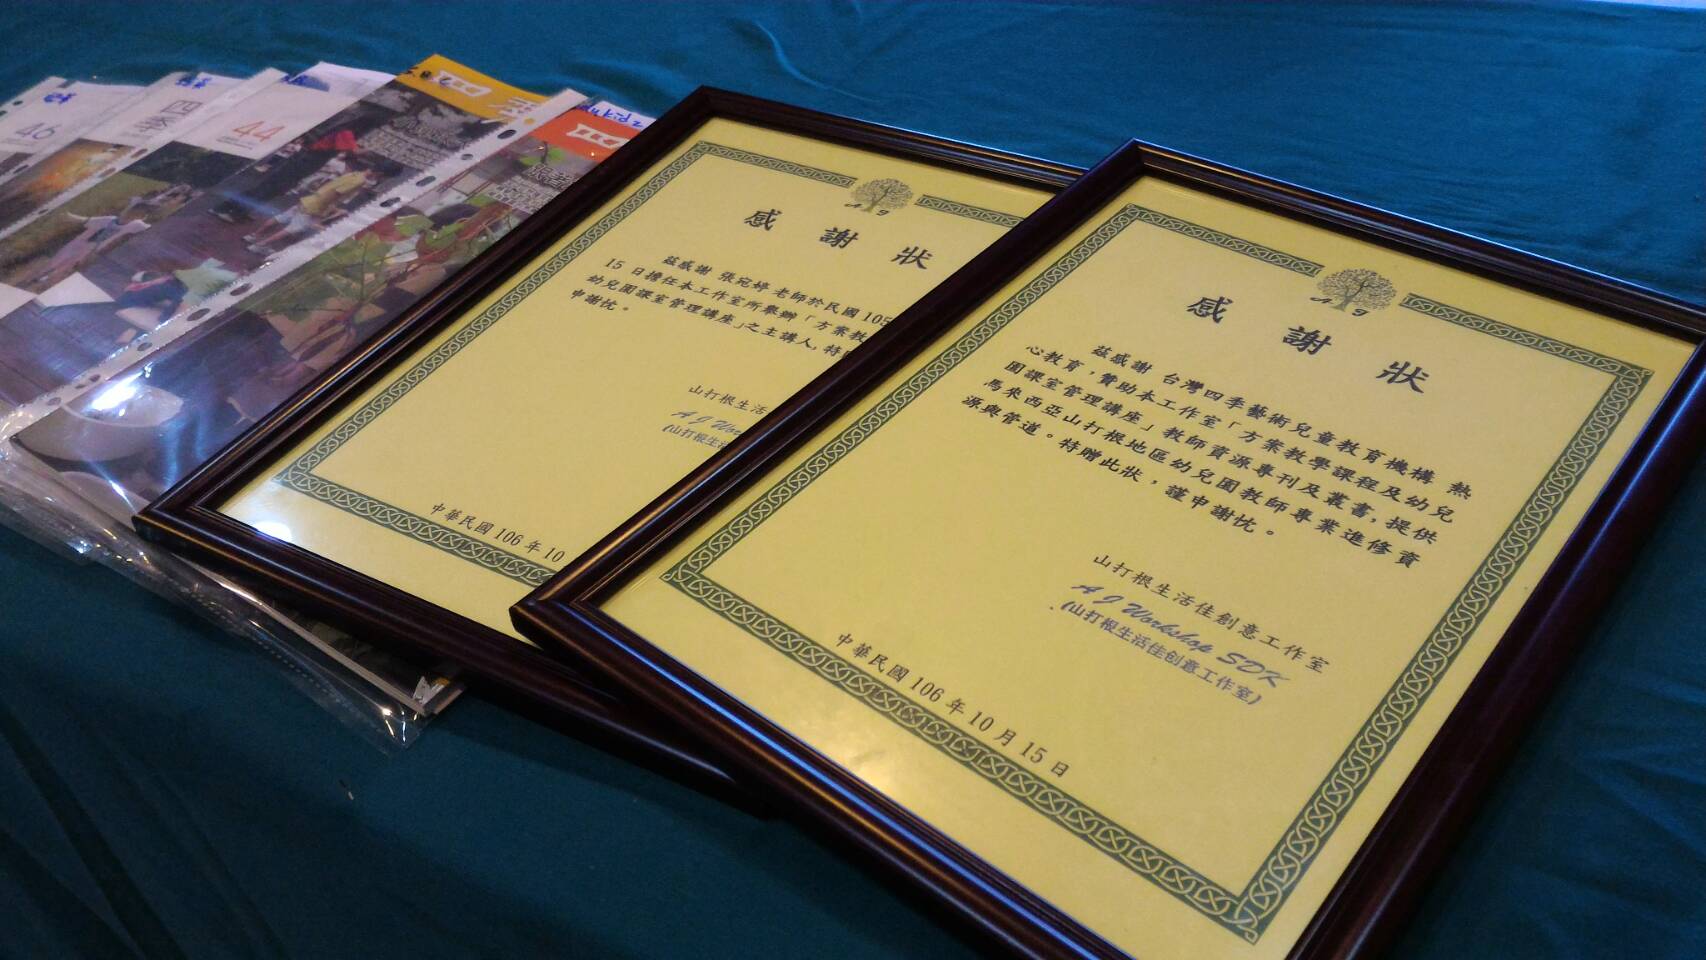 46
四季
44
感謝狀
茲感謝 張宛婷 老師於民國 105
15 日擔任本工作室所舉辦「方案教
幼兒園課室管理講座」之主講人, 特
申謝忱。
山打根生活
A J Wor
(山打根生活
中華民國 106 年 10
A J
感謝狀
茲感謝 台灣四季藝術兒童教育機構 熱
心教育，贊助本工作室「方案教學課程及幼兒
園課室管理講座」教師資源專刊及叢書, 提供
馬來西亞山打根地區幼兒園教師專業進修資
源與管道。特贈此狀，謹申謝忱。
山打根生活佳創意工作室
A J Workshop SDK
(山打根生活佳创意工作室)
中華民國 106 年 10 月 15 日